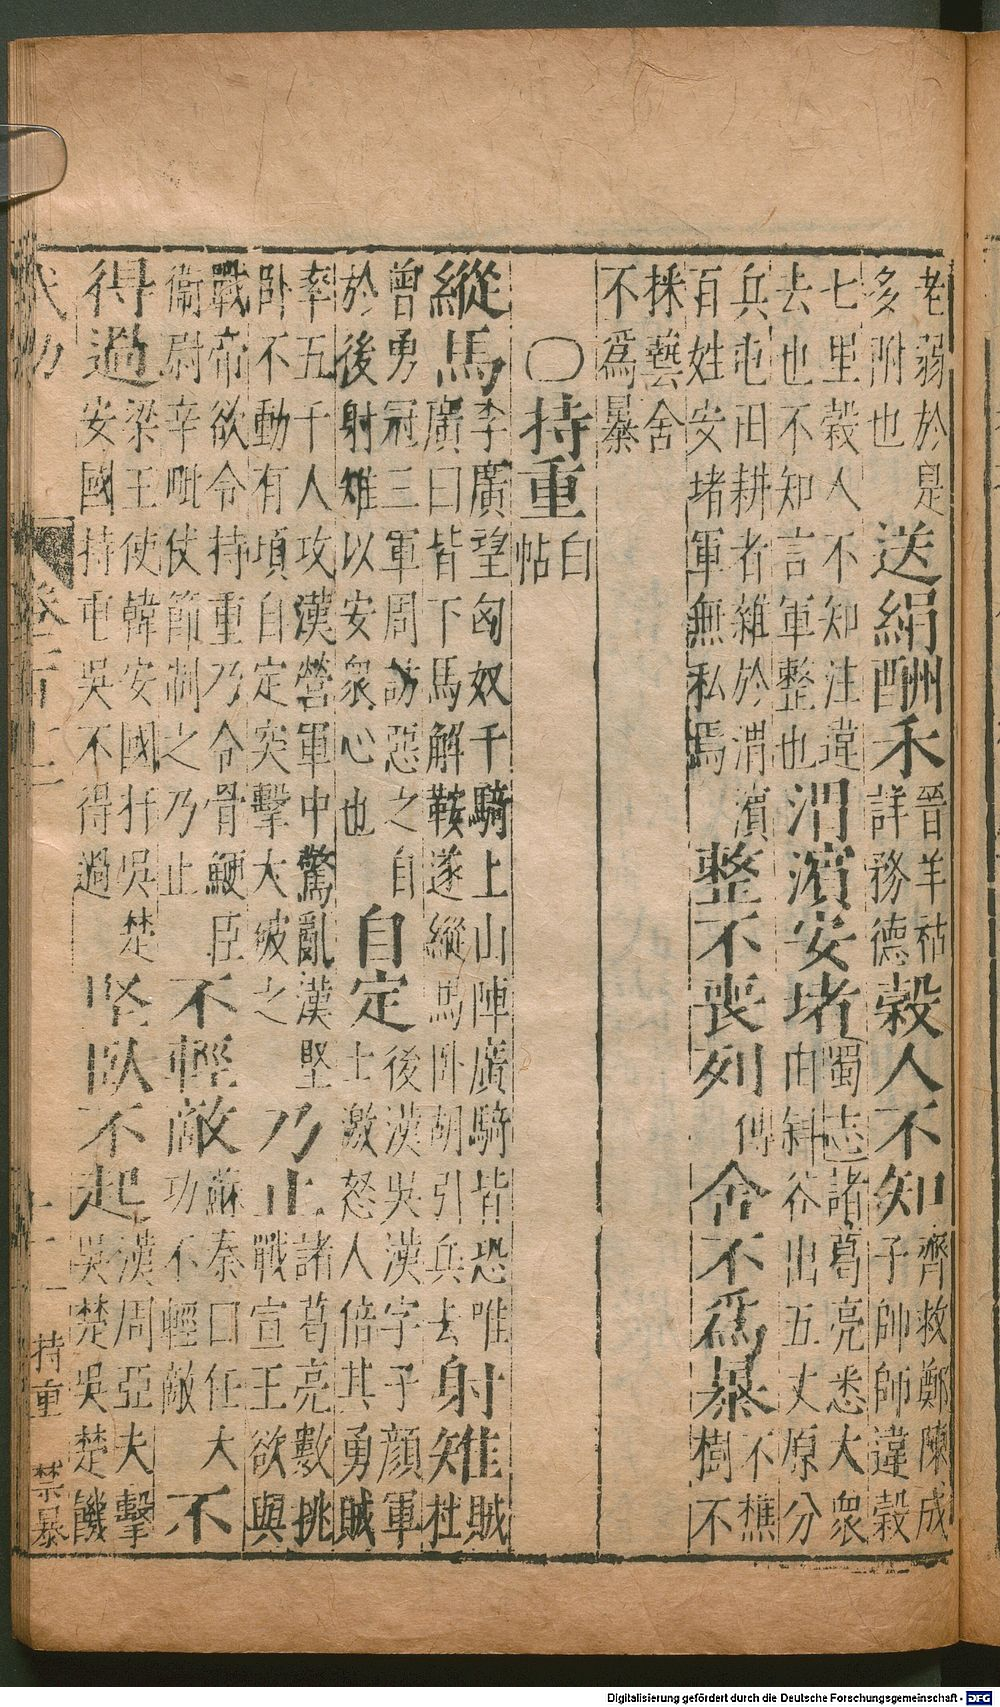 老弱於是
多附也
送絹酬禾
晉羊祜
詳務德
穀人不知
齊救鄭陳成
子帥師違穀
七里穀人不知注違
去也不知言軍整也
渭濱安堵
蜀志諸葛亮悉大衆
由斜谷出五丈原分
兵屯田耕者雜於渭濱
百姓安堵軍無私焉
整不喪列
傳
舍不爲暴
不樵
樹不
採藝舍
不爲暴
○持重
白
帖
縱馬
李廣望匈奴千騎上山陣廣騎皆恐唯
廣曰皆下馬解鞍遂縱馬卧胡引兵去
射雉
賊
杜
曾勇冠三軍周訪惡之自
於後射雉以安衆心也
自定
後漢吳漢字子顏軍
士激怒人倍其勇賊
率五千人攻漢營軍中驚亂漢堅
卧不動有頃自定突擊大破之
乃止
諸葛亮數挑
戰宣王欲與
戰帝欲令持重乃令骨鯁臣
衞尉辛毗仗節制之乃止
不輕敵
蘇秦曰任大
功不輕敵
不
得過
梁王使韓安國扞吳楚
安國持屯吳不得過
堅臥不起
漢周亞夫擊
吳楚吳楚饑
武功
持重
禁暴
Digitalisierung gefördert durch die Deutsche Forschungsgemeinschaft - DFG